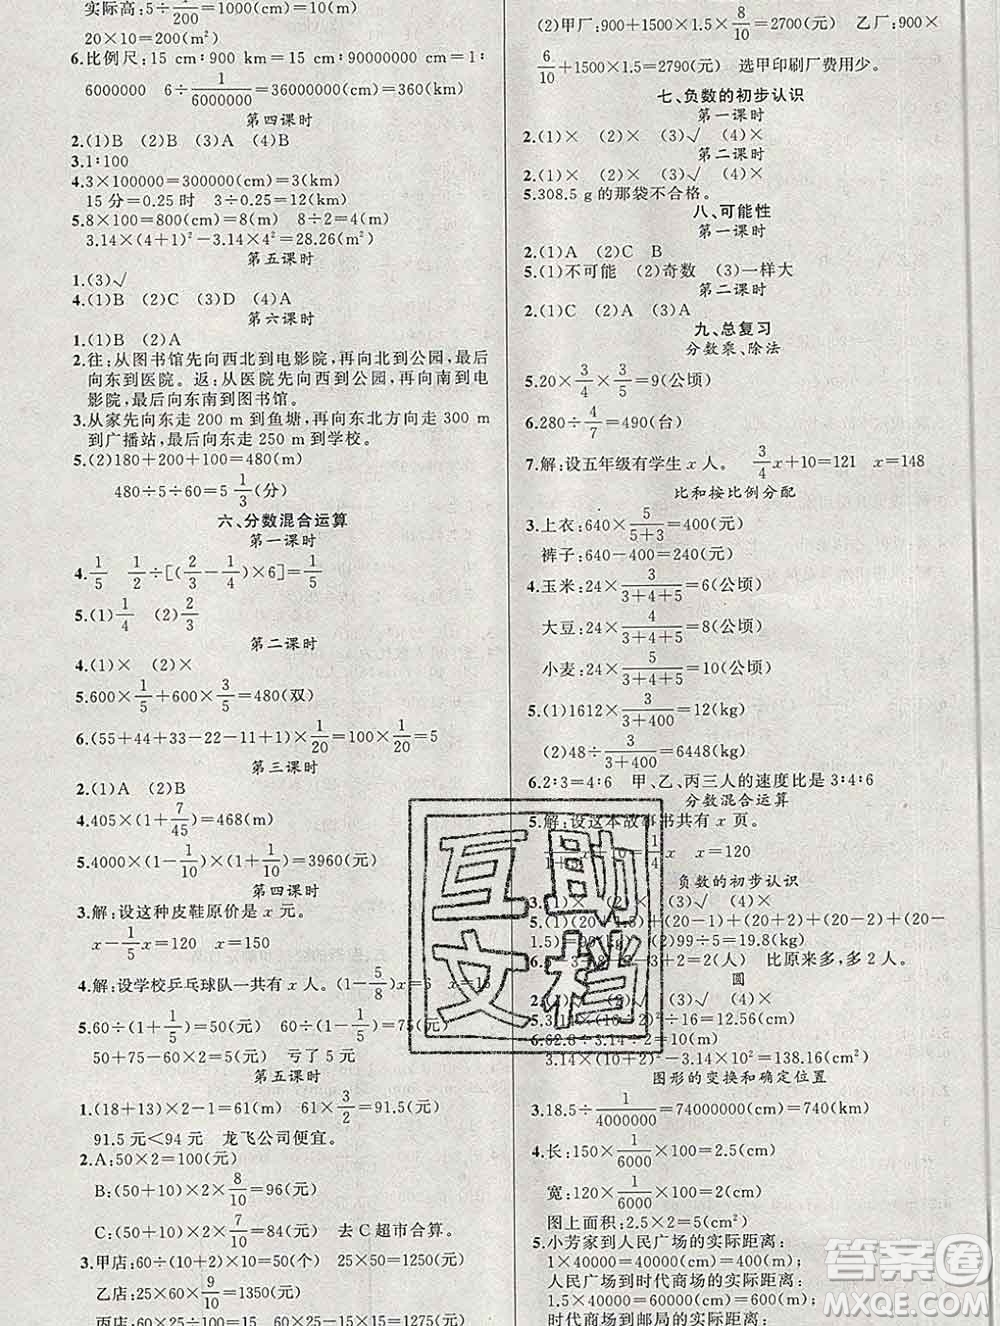 实际高:5÷1/200=1000(cm)=10(m)
20×10=200(m²)
6.比例尺:15 cm∶900 km=15 cm∶90000000 cm=1∶
6000000 6÷1/6000000=36000000(cm)=360(km)
第四课时
2.(1)B (2)B (3)A (4)B
3.1∶100
4.3×100000=300000(cm)=3(km)
15 分=0.25 时 3÷0.25=12(km)
5.8×100=800(cm)=8(m) 8÷2=4(m)
3.14×(4+1)²-3.14×4²=28.26(m²)
第五课时
1.(3)√
4.(1)B (2)C (3)D (4)A
第六课时
1.(1)B (2)A
2.往:从图书馆先向西北到电影院,再向北到公园,最后
向东到医院。返:从医院先向西到公园,再向南到电
影院,最后向东南到图书馆。
3.从家先向东走 200 m到鱼塘,再向东北方向走 300 m
到广播站,最后向东走 250 m到学校。
5.(2)180+200+100=480(m)
480÷5÷60=5 1/3(分)
六、分数混合运算
第一课时
4.1/5 1/2÷[(2/3-1/4)×6]=1/5
5.(1)1/4 (2)2/3
第二课时
4.(1)× (2)×
5.600×1/5+600×3/5=480(双)
6.(55+44+33-22-11+1)×1/20=100×1/20=5
第三课时
2.(1)A (2)B
4.405×(1+7/45)=468(m)
5.4000×(1-1/10)×(1+1/10)=3960(元)
第四课时
3.解:设这种皮鞋原价是 x 元。
x-1/5x=120 x=150
4.解:设学校乒乓球队一共有 x 人。(1-5/8)x=6 x=16
5.60÷(1+1/5)=50(元) 60÷(1-1/5)=75(元)
50+75-60×2=5(元) 亏了 5 元
第五课时
1.(18+13)×2-1=61(m) 61×3/2=91.5(元)
91.5元<94 元 龙飞公司便宜。
2.A:50×2=100(元)
B:(50+10)×2×8/10=96(元)
C:(50+10)×2×7/10=84(元) 去 C 超市合算。
3.甲店:60÷(10+2)×10=50 25×50=1250(元)
乙店:25×60×9/10=1350(元)
丙店:60×25÷100=15 60×25-15×15
(2)甲厂:900+1500×1.5×8/10=2700(元) 乙厂:900×
6/10+1500×1.5=2790(元) 选甲印刷厂费用少。
七、负数的初步认识
第一课时
2.(1)× (2)× (3)√ (4)×
第二课时
2.(1)× (2)× (3)√ (4)×
5.308.5 g 的那袋不合格。
八、可能性
第一课时
2.(1)A (2)C B
5.(1)不可能 (2)奇数 (3)一样大
第二课时
2.(1)C (2)A
九、总复习
分数乘、除法
5.20×3/4×3/5=9(公顷)
6.280÷4/7=490(台)
7.解:设五年级有学生 x 人。 3/4x+10=121 x=148
比和按比例分配
3.上衣:640×5/5+3=400(元)
裤子:640-400=240(元)
4.玉米:24×3/3+4+5=6(公顷)
大豆:24×4/3+4+5=8(公顷)
小麦:24×5/3+4+5=10(公顷)
5.(1)1612×3/3+400=12(kg)
(2)48÷3/3+400=6448(kg)
6.2∶3=4∶6 甲、乙、丙三人的速度比是 3∶4∶6
分数混合运算
5.解:设这本故事书共有 x 页。
x=120
负数的初步认识
3.(1)× (2)× (3)√ (4)×
5.(1)(20+1.5)+(20-1)+(20+2)+(20+
1.5) (2)99÷5=19.8(kg)
-3+2=2(人) 比原来多,多 2 人。
圆
2.(1)× (3)√ (4)×
5.3.14×(10÷2)²÷16=12.56(cm)
6.62.8÷3.14÷2=10(m)
3.14×(10+2)²-3.14×10²=138.16(cm²)
图形的变换和确定位置
3.18.5÷1/4000000=74000000(cm)=740(km)
4.长:150×1/6000×100=2.5(cm)
宽:120×1/6000×100=2(cm)
图上面积:2.5×2=5(cm²)
5.小芳家到人民广场的实际距离:
1×40000=40000(cm)=400(m)
人民广场到时代商场的实际距离:
1.5×40000=60000(cm)=600(m)
时代商场到邮局的实际距离:
互助
文档
答案圈
MXQE.COM